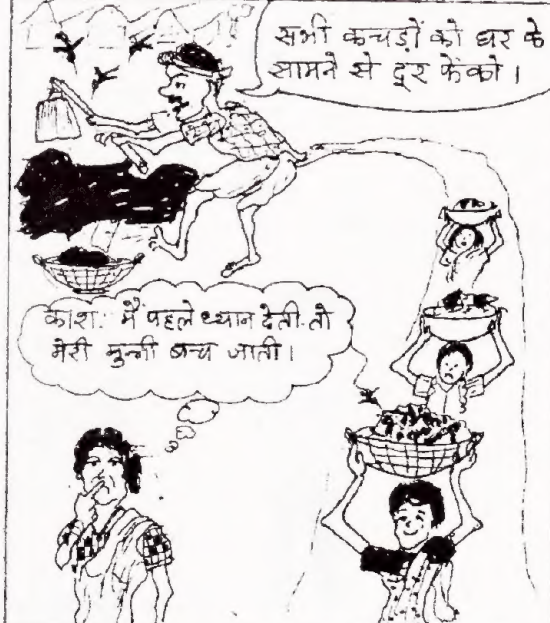 सभी कचड़ों को घर के
सामने से दूर फेंको।
काश! मैं पहले ध्यान देती तो
मेरी मुन्नी बच जाती।